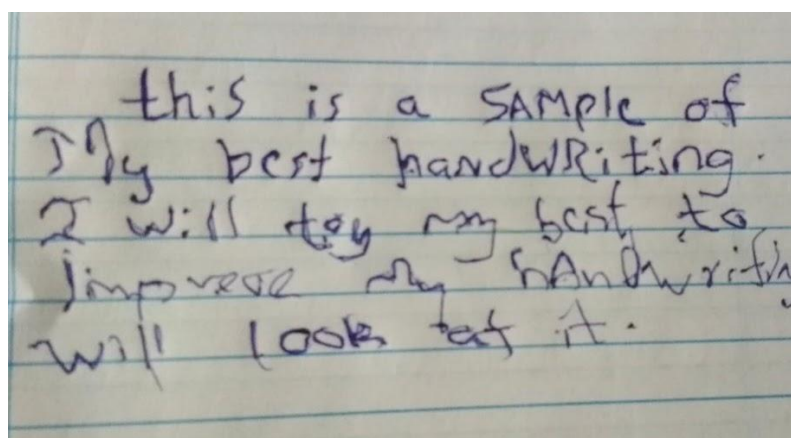 this is a SAMPle of
My best handWRiting.
I will try my best to
improve my hANdwritin
will look at it.